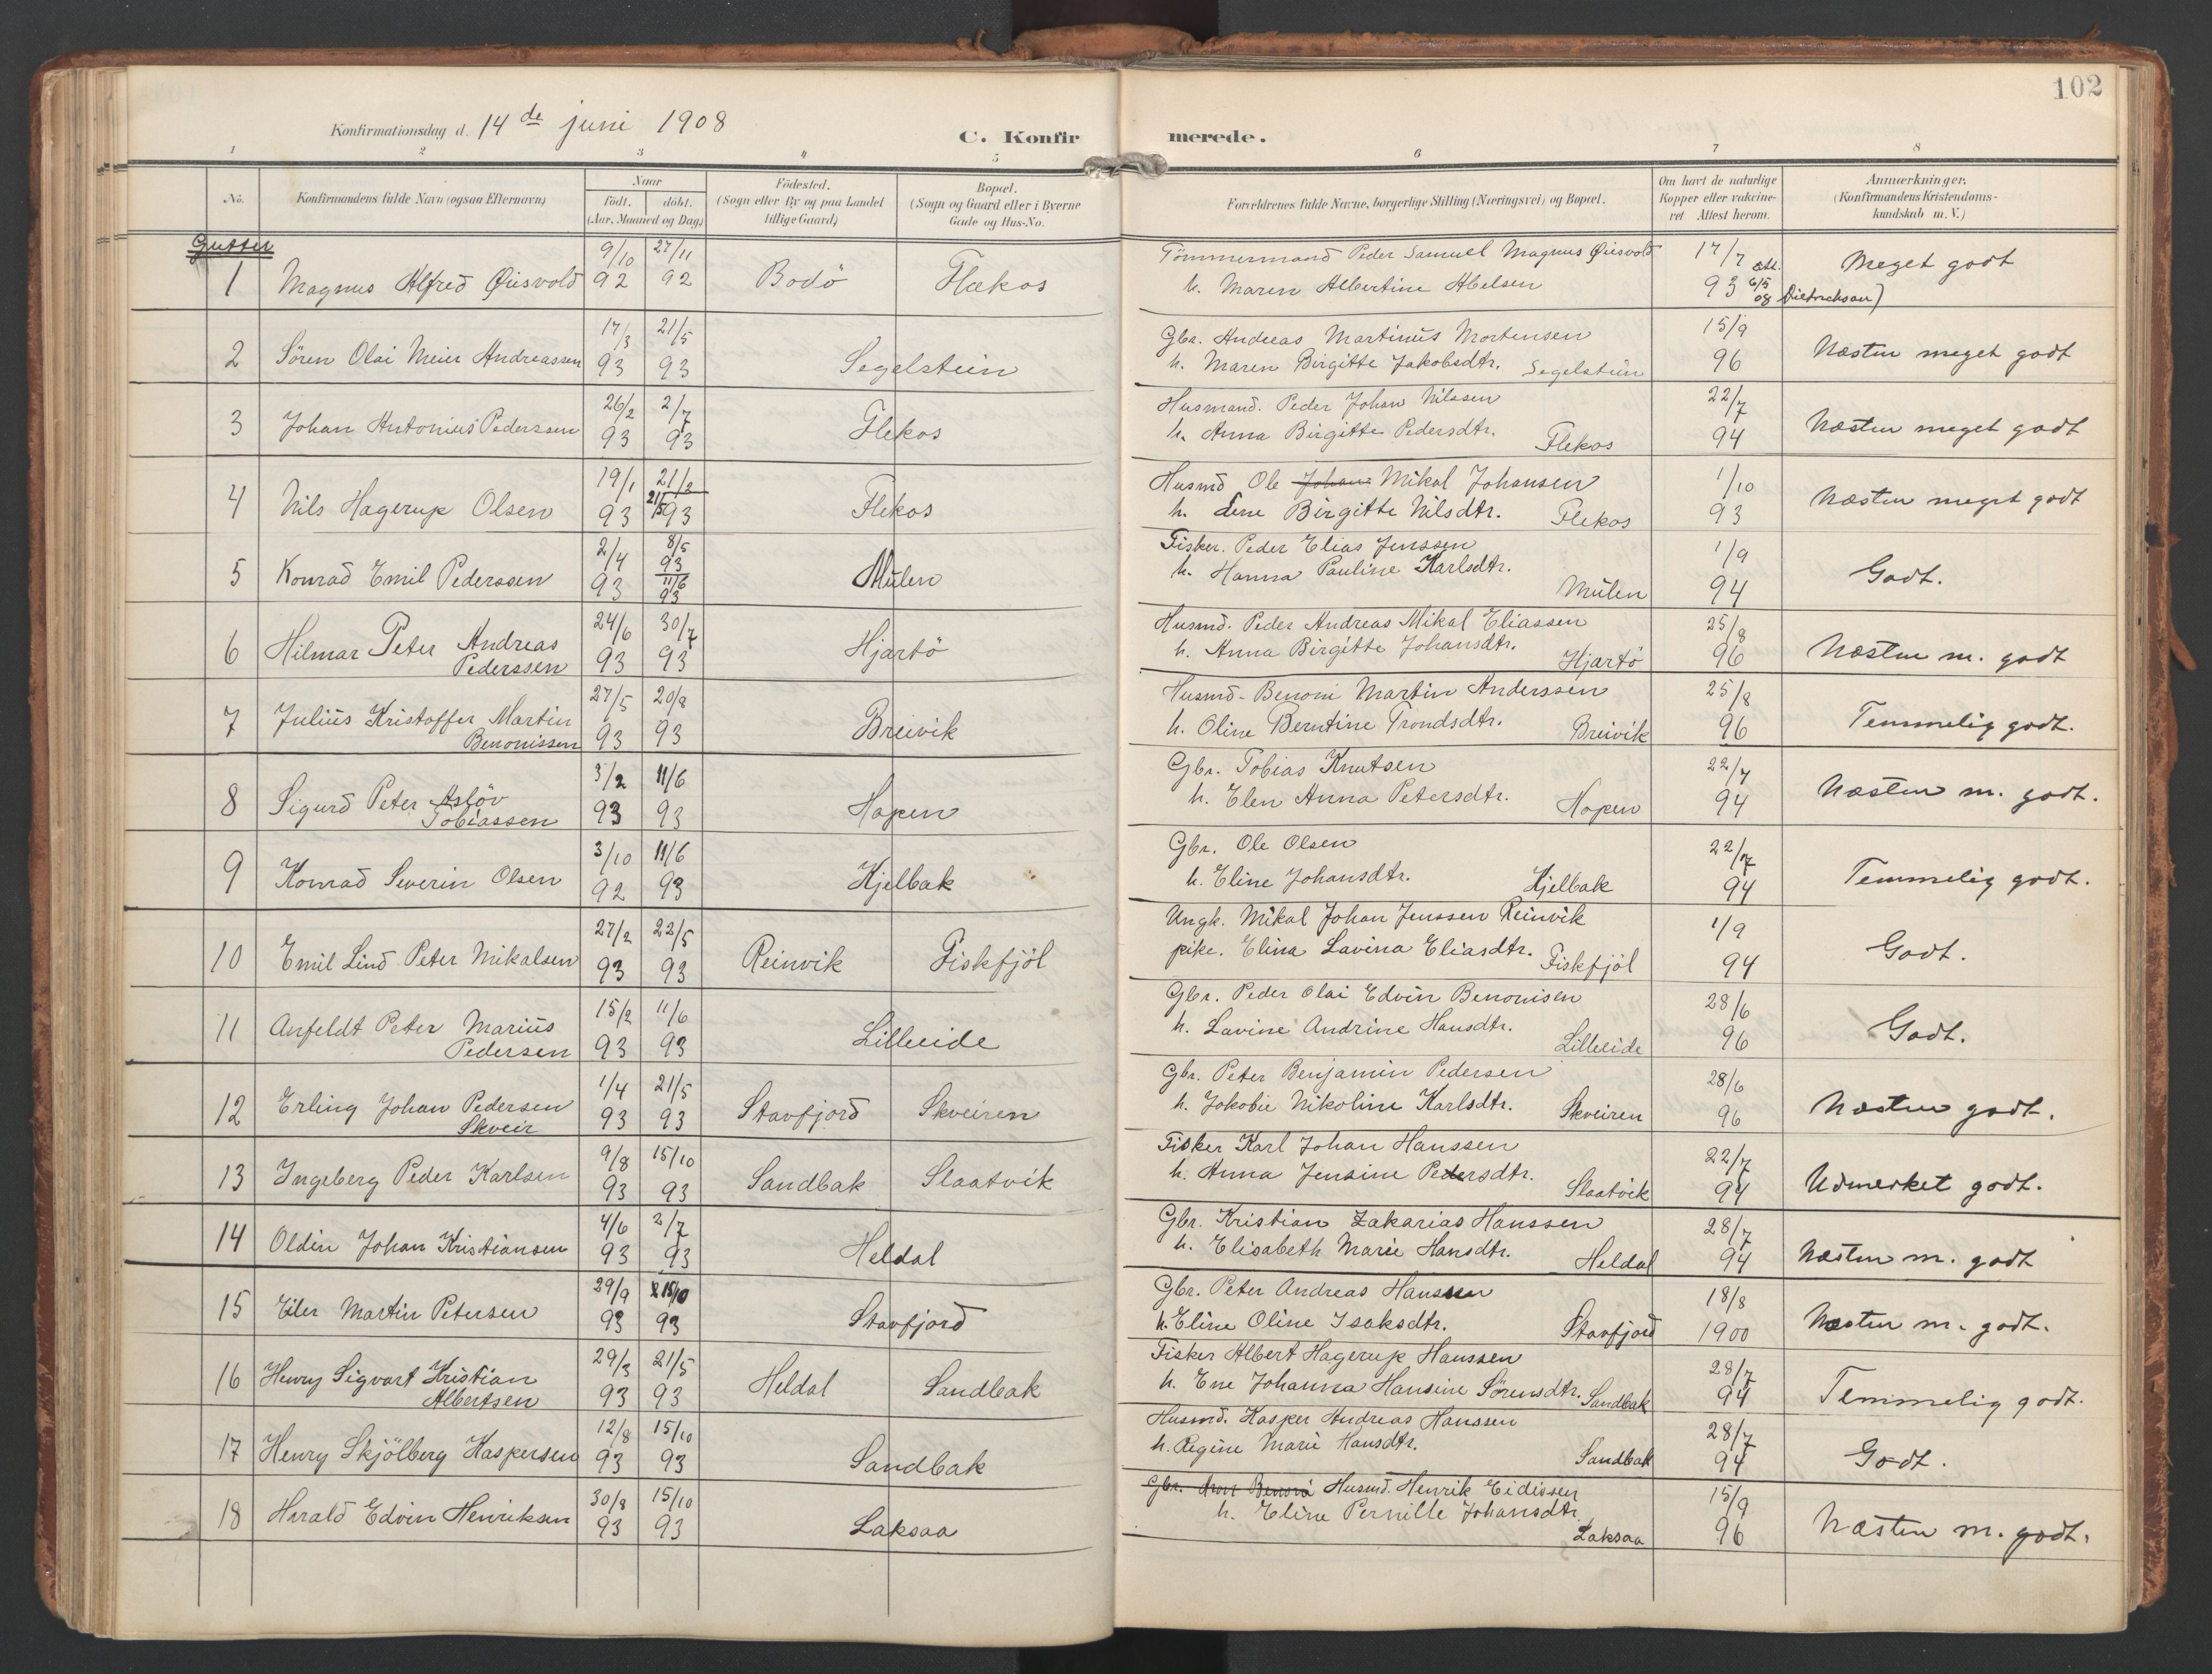 102
Konfirmationsdag d. 14de juni 1908
C. Konfirmerede.
1 2 3 4 5 6 7 8
No. Konfirmandens fulde Navn (ogsaa Efternavn) Naar født. døbt. (Aar, Maaned og Dag) Födested. (Sogn eller By og paa Landet tillige Gaard) Bopæl. (Sogn og Gaard eller i Byerne Gade og Hus-No. Forældrenes fulde Navne, borgerlige Stilling (Næringsvei) og Bopæl. Om havt de naturlige Kopper eller vakcineret Attest herom. Anmærkninger. (Konfirmandens Kristendomskundskab m. V.)
Gutter
1 Magnus Alfred Øiesvold 9/10 92 27/11 92 Bodö Flækos Tömmermand Peder Samuel Magnus Øiesvold 17/7 93 att. 6/5 08 Meget godt
h. Maren Albertine Abelsen Dietrichson)
2 Sören Olai Meier Andreassen 17/3 93 21/5 93 Segelstein Gbr. Andreas Martinus Mortensen 15/9 96 Næsten meget godt
h. Maren Birgitte Jakobsdtr. Segelstein
3 Johan Antonius Pederssen 26/2 93 2/7 93 Flekos Husmand. Peder Johan Nilssen 22/7 94 Næsten meget godt
h. Anna Birgitte Pedersdtr. Flekos
4 Nils Hagerup Olsen 19/1 93 21/3 21/5 93 Flekos Husmd Ole Johan Mikal Johansen 1/10 93 Næsten meget godt
h. Lene Birgitte Nilsdtr. Flekos
5 Konrad Emil Pederssen 2/4 93 8/5 93 11/6 93 Mulen Fisker. Peder Elias Jenssen 1/9 94 Godt.
h. Hanna Pauline Karlsdtr. Mulen
6 Hilmar Peter Andreas Pederssen 24/6 93 30/7 93 Hjartö Husmd. Peder Andreas Mikal Eliassen 25/8 96 Næsten m. godt
h. Anna Birgitte Johansdtr. Hjartö
7 Julius Kristoffer Martin Benonissen 27/5 93 20/8 93 Breivik Husmd. Benoni Martin Anderssen 25/8 96 Temmelig godt.
h. Oline Berntine Trondsdtr. Breivik
8 Sigurd Peter Aslöv Tobiassen 3/2 93 11/6 93 Hopen Gbr. Tobias Knutsen 22/7 94 Næsten m. godt.
h. Elen Anna Petersdtr. Hopen
9 Konrad Severin Olsen 3/10 92 11/6 93 Kjelbak Gbr. Ole Olsen 22/7 94 Temmelig godt.
h. Eline Johansdtr. Kjelbak
10 Emil Lind Peter Mikalsen 27/2 93 22/5 93 Reinvik Fiskfjöl Ungk. Mikal Johan Jenssen Reinvik 1/9 94 Godt.
pike. Elina Lavina Eliasdtr. Fiskfjöl
11 Anfeldt Peter Marius Pedersen 15/2 93 11/6 93 Lilleeide Gbr. Peder Olai Edvin Benonisen 28/6 96 Godt.
h. Lavine Andrine Hansdtr. Lilleeide
12 Erling Johan Pedersen Skveir 1/4 93 21/5 93 Stavfjord Skveiren Gbr. Peter Benjamin Pedersen 28/6 96 Næsten godt.
h. Jakobie Nikoline Karlsdtr. Skveiren
13 Ingeberg Peder Karlsen 9/8 93 15/10 93 Sandbak Slaatvik Fisker Karl Johan Hanssen 22/7 94 Udmerket godt.
h. Anna Jensine Pedersdtr. Slaatvik
14 Oldin Johan Kristiansen 4/6 93 2/7 93 Heldal Gbr. Kristian Zakarias Hanssen 28/7 94 Næsten m. godt
h. Elisabeth Marie Hansdtr. Heldal
15 Eiler Martin Petersen 29/9 93 15/10 93 Stavfjord Gbr. Peter Andreas Hanssen 18/8 1900 Næsten m. godt.
h. Eline Oline Isaksdtr. Stavfjord
16 Henry Sigvart Kristian Albertsen 29/3 93 21/5 93 Heldal Sandbak Fisker Albert Hagerup Hanssen 28/7 94 Temmelig godt.
h. Ene Johanna Hansine Sörensdtr. Sandbak
17 Henry Skjölberg Kaspersen 12/8 93 15/10 93 Sandbak Husmd. Kasper Andreas Hanssen 28/7 94 Godt.
h. Regine Marie Hansdtr. Sandbak
18 Harald Edvin Henriksen 30/8 93 15/10 93 Laksaa Gbr. Husmd. Henrik Eidissen 15/9 96 Næsten m. godt.
h. Eline Pernille Johansdtr. Laksaa